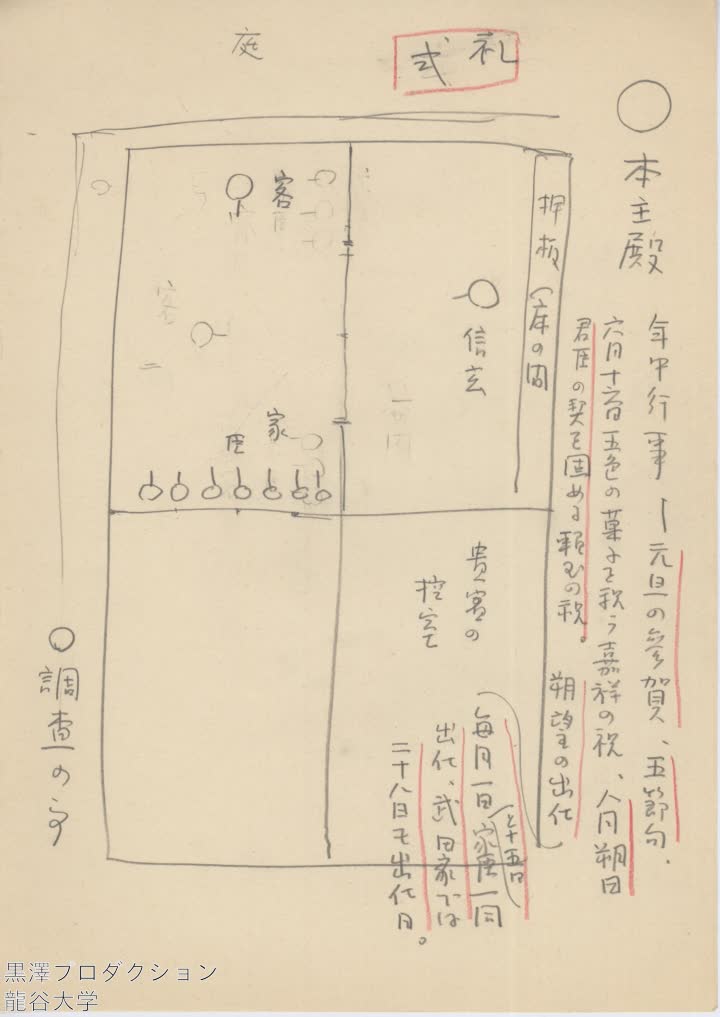 礼式
庭
本主殿
年中行事ー元旦の参賀、五節句、
六月十六日五色の菓子を祝う嘉祥の祝、八月朔日
君臣の契を固める頼むの祝。
朔望の出仕
押板(床の間
信玄
客
家臣
貴賓の
控室
(毎月一日(と十五日)家臣一同
出仕、武田家では
二十八日も出仕日。
調査の
黒澤プロダクション
龍谷大学